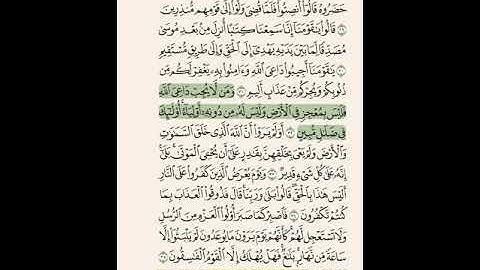 حَضَرُوهُ قَالُوٓا۟ أَنصِتُوا۟ۖ فَلَمَّا قُضِىَ وَلَّوْا۟ إِلَىٰ قَوْمِهِم مُّنذِرِينَ
٢٩ قَالُوا۟ يَٰقَوْمَنَآ إِنَّا سَمِعْنَا كِتَٰبًا أُنزِلَ مِنۢ بَعْدِ مُوسَىٰ
مُصَدِّقًا لِّمَا بَيْنَ يَدَيْهِ يَهْدِىٓ إِلَى ٱلْحَقِّ وَإِلَىٰ طَرِيقٍ مُّسْتَقِيمٍ
٣٠ يَٰقَوْمَنَآ أَجِيبُوا۟ دَاعِىَ ٱللَّهِ وَءَامِنُوا۟ بِهِۦ يَغْفِرْ لَكُم مِّن
ذُنُوبِكُمْ وَيُجِرْكُم مِّنْ عَذَابٍ أَلِيمٍ ٣١ وَمَن لَّا يُجِبْ دَاعِىَ ٱللَّهِ
فَلَيْسَ بِمُعْجِزٍ فِى ٱلْأَرْضِ وَلَيْسَ لَهُۥ مِن دُونِهِۦٓ أَوْلِيَآءُۚ أُو۟لَٰٓئِكَ
فِى ضَلَٰلٍ مُّبِينٍ ٣٢ أَوَلَمْ يَرَوْا۟ أَنَّ ٱللَّهَ ٱلَّذِى خَلَقَ ٱلسَّمَٰوَٰتِ
وَٱلْأَرْضَ وَلَمْ يَعْىَ بِخَلْقِهِنَّ بِقَٰدِرٍ عَلَىٰٓ أَن يُحْۦِىَ ٱلْمَوْتَىٰۚ بَلَىٰٓ
إِنَّهُۥ عَلَىٰ كُلِّ شَىْءٍ قَدِيرٌ ٣٣ وَيَوْمَ يُعْرَضُ ٱلَّذِينَ كَفَرُوا۟ عَلَى ٱلنَّارِ
أَلَيْسَ هَٰذَا بِٱلْحَقِّۖ قَالُوا۟ بَلَىٰ وَرَبِّنَاۚ قَالَ فَذُوقُوا۟ ٱلْعَذَابَ بِمَا
كُنتُمْ تَكْفُرُونَ ٣٤ فَٱصْبِرْ كَمَا صَبَرَ أُو۟لُوا۟ ٱلْعَزْمِ مِنَ ٱلرُّسُلِ
وَلَا تَسْتَعْجِل لَّهُمْۚ كَأَنَّهُمْ يَوْمَ يَرَوْنَ مَا يُوعَدُونَ لَمْ يَلْبَثُوٓا۟ إِلَّا
سَاعَةً مِّن نَّهَارٍۭۚ بَلَٰغٌۚ فَهَلْ يُهْلَكُ إِلَّا ٱلْقَوْمُ ٱلْفَٰسِقُونَ ٣٥